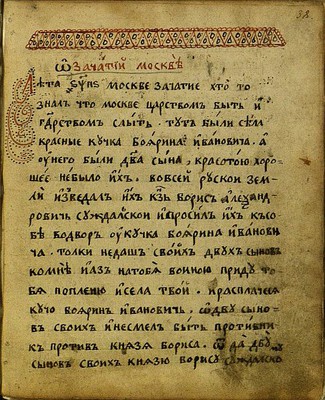 ѿ зачатїй москвѣ
Лѣта москве зачатие хто то
зналъ что москве царствомъ быть и
гдрствомъ слыть. тутъ были села
красные кучка боярина ивановича. а
оунего были два сына, красотою хоро-
шее небыло ихъ. вовсей рускои зем-
ли изведалъ ихъ кнзь борисъ алеѯанд
ровичь суждалскои ипросилъ ихъ късо
бѣ водворъ оукучка боярина иванови
ча. толки недашъ своихъ двухъ сыновъ
комнѣ иязъ натобя воиною приду то
бя попленю исела твои. ирасплачеся
кучо бояринъ ивановичь. ѿдву сыно-
въ своихъ инесмелъ быть противни
къ противъ князя бориса. ѿ да двѹ
сыновъ своихъ князю борису суждалско